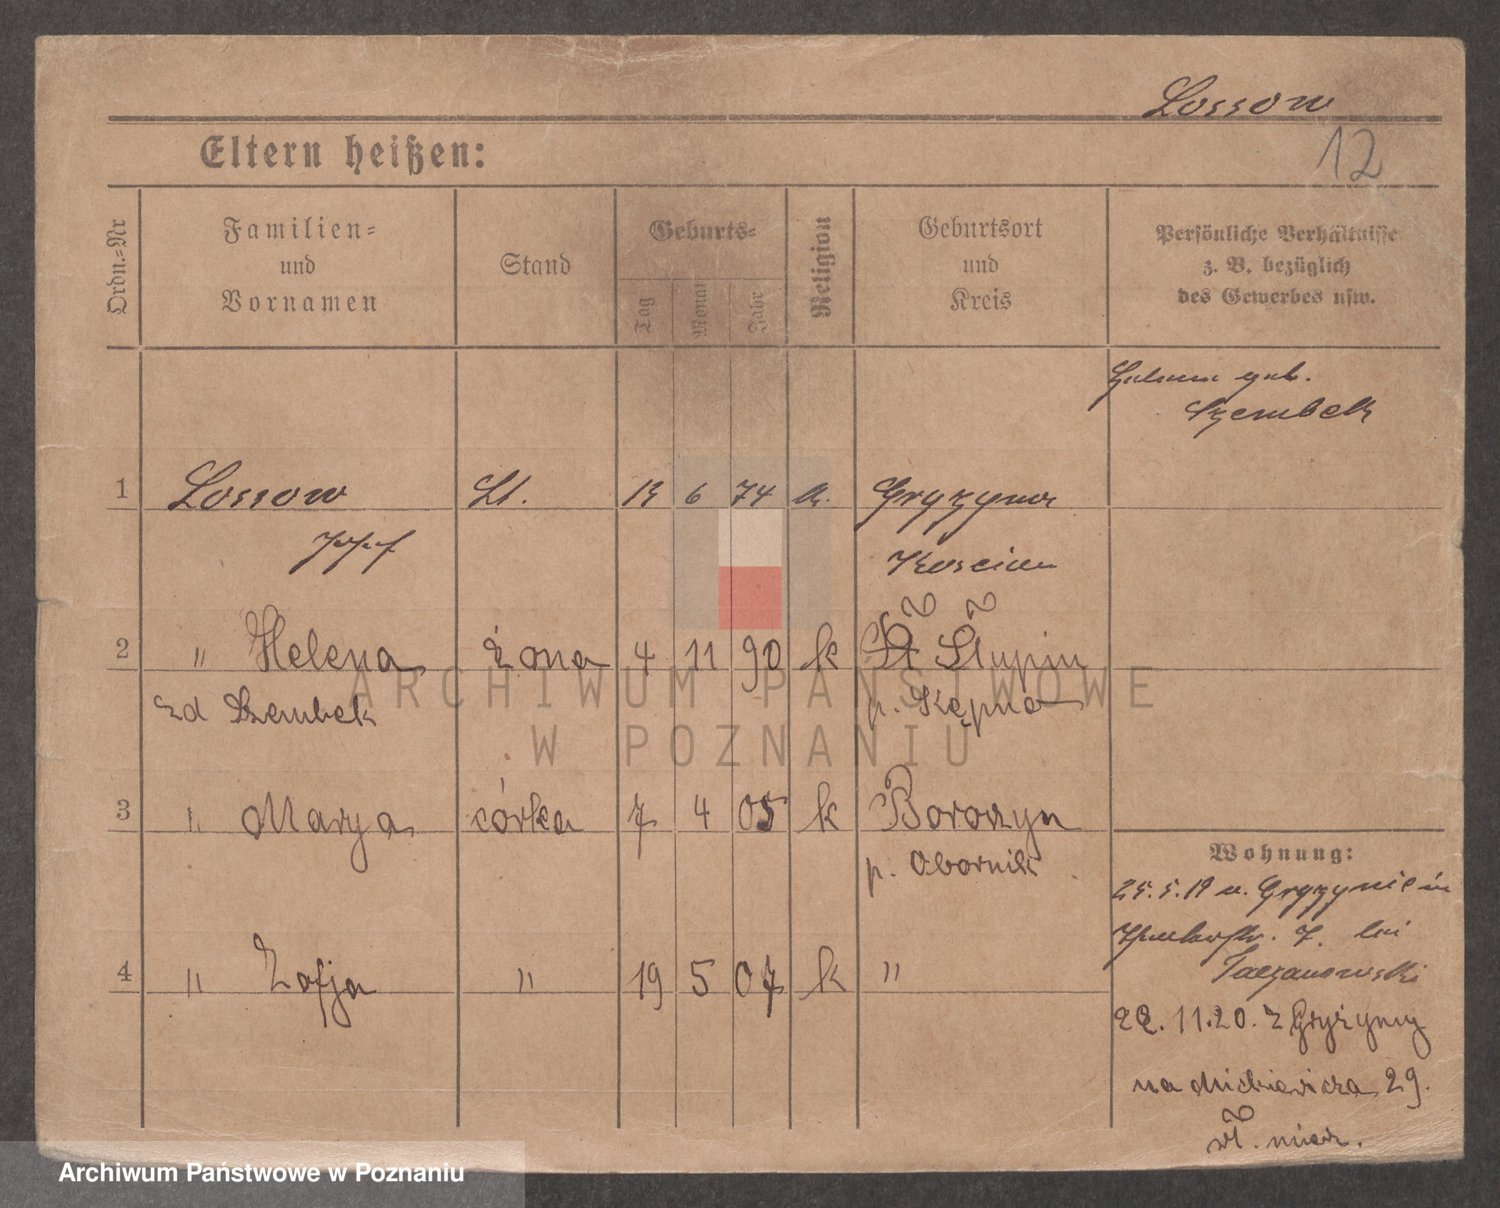 Lossow
12
Eltern heißen:
Ordn.-Nr
Familien-
und
Vornamen
Stand
Geburts-
Tag
Monat
Jahr
Religion
Geburtsort
und
Kreis
Persönliche Verhältnisse
z. B. bezüglich
des Gewerbes usw.
geb.
Szembek
1 Lossow Lt. 13 6 74 k. Gryzyna
Josef Koscian
2 " Helena żona 4 11 90 k Słupin
zd Szembek p. Kępno
3 " Marya córka 7 4 05 k Boroszyn
p. Obornik
4 " Zofja " 19 5 07 k "
Wohnung:
25.5.19 v. Gryzynie in
7. bei
Taczanowski
22. 11.20. z Gryżyny
na Mickiewicza 29.
wł. miesz.
ARCHIWUM PAŃSTWOWE
W POZNANIU
Archiwum Państwowe w Poznaniu